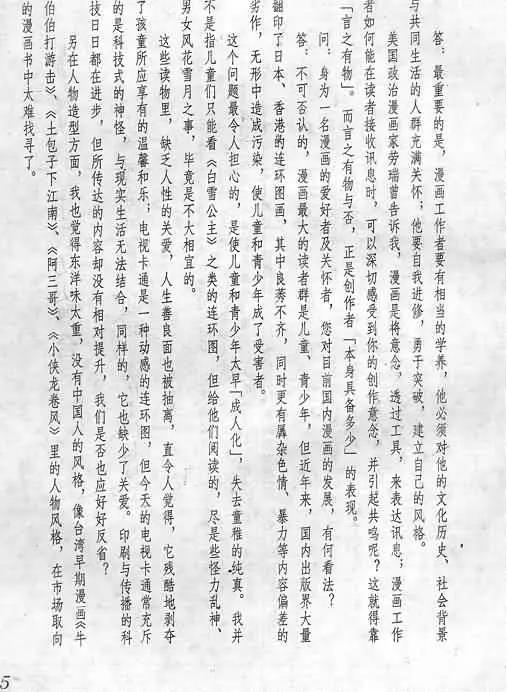 答:最重要的是,漫画工作者要有相当的学养,他必须对他的文化历史、社会背景
与共同生活的人群充满关怀;他要自我进修,勇于突破,建立自己的风格。
美国政治漫画家劳瑞曾告诉我,漫画是将意念,透过工具,来表达讯息;漫画工作
者如何能在读者接收讯息时,可以深切感受到你的创作意念,并引起共鸣呢?这就得靠
「言之有物」。而言之有物与否,正是创作者「本身具备多少」的表现。
问:身为一名漫画的爱好者及关怀者,您对目前国内漫画的发展,有何看法?
答:不可否认的,漫画最大的读者群是儿童、青少年,但近年来,国内出版界大量
翻印了日本、香港的连环图画,其中良莠不齐,同时更有羼杂色情、暴力等内容偏差的
劣作,无形中造成污染,使儿童和青少年成了受害者。
这个问题最令人担心的,是使儿童和青少年太早「成人化」,失去童稚的纯真。我并
不是指儿童们只能看《白雪公主》之类的连环图,但给他们阅读的,尽是些怪力乱神、
男女风花雪月之事,毕竟是不大相宜的。
这些读物里,缺乏人性的关爱,人生善良面也被抽离,直令人觉得,它残酷地剥夺
了孩童所应享有的温馨和乐;电视卡通是一种动感的连环图,但今天的电视卡通常充斥
的是科技式的神怪,与现实生活无法结合,同样的,它也缺少了关爱。印刷与传播的科
技日日都在进步,但所传达的内容却没有相对提升,我们是否也应好好反省?
另在人物造型方面,我也觉得东洋味太重,没有中国人的风格,像台湾早期漫画《牛
伯伯打游击》、《土包子下江南》、《阿三哥》、《小侠龙卷风》里的人物风格,在市场取向
的漫画书中太难找寻了。
5